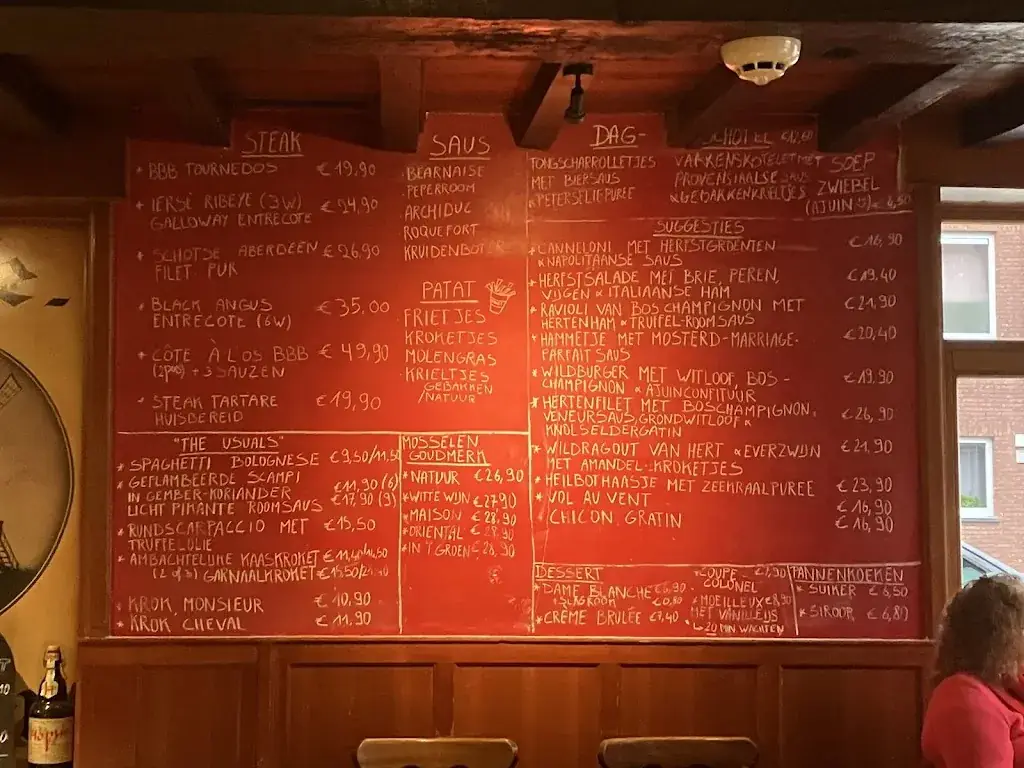 STEAK
* BBB TOURNEDOS € 19,90
* IERSE RIBEYE (3W) € 24,90
GALLOWAY ENTRECOTE
* SCHOTSE ABERDEEN € 26,90
FILET PUR
* BLACK ANGUS € 35,00
ENTRECOTE (6W)
* CÔTE À L'OS BBB € 49,90
(2pers) + 3 SAUZEN
* STEAK TARTARE € 19,90
HUISBEREID
SAUS
BEARNAISE
PEPERROOM
ARCHIDUC
ROQUEFORT
KRUIDENBOTER
PATAT
FRIETJES
KROKETJES
MOLENGRAS
KRIELTJES
GEBAKKEN
/NATUUR
DAG-
TONGSCHARROLLETJES
MET BIERSAUS
& PETERSELIEPUREE
SCHOTEL
VARKENSKOTELET MET
PROVENSIAALSE SAUS
& GEBAKKEN KRIELTJES
SOEP
ZWIEBEL
(AJUIN
SUGGESTIES
* CANNELONI MET HERFSTGROENTEN € 16,90
& NAPOLITAANSE SAUS
* HERFSTSALADE MET BRIE, PEREN, € 19,40
VIJGEN & ITALIAANSE HAM
* RAVIOLI VAN BOSCHAMPIGNON MET € 21,90
HERTENHAM & TRUFFEL-ROOMSAUS
* HAMMETJE MET MOSTERD-MARRIAGE- € 20,40
PARFAIT SAUS
* WILDBURGER MET WITLOOF, BOS- € 19,90
CHAMPIGNON & AJUINCONFITUUR
* HERTENFILET MET BOSCHAMPIGNON, € 26,90
VENEURSAUS, GRONDWITLOOF &
KNOLSELDERGATIN
* WILDRAGOUT VAN HERT & EVERZWIJN € 21,90
MET AMANDEL-KROKETJES
* HEILBOTHAASJE MET ZEEKRAALPUREE € 23,90
* VOL AU VENT € 16,90
* CHICON GRATIN € 16,90
"THE USUALS"
* SPAGHETTI BOLOGNESE € 9,50/11,50
* GEFLAMBEERDE SCAMPI
IN GEMBER-KORIANDER € 11,90 (6)
LICHT PIKANTE ROOMSAUS € 17,90 (9)
* RUNDSCARPACCIO MET € 15,50
TRUFFELOLIE
* AMBACHTELIJKE KAASKROKET
(2 of 3) GARNAALKROKET
* KROK. MONSIEUR € 10,90
* KROK CHEVAL € 11,90
MOSSELEN
GOUDMERK
* NATUUR € 26,90
* WITTE WIJN € 27,90
* MAISON € 28,90
* ORIENTAL € 28,90
* IN 'T GROEN € 28,90
DESSERT
* DAME BLANCHE € 6,90
+ SLAGROOM € 0,80
* CRÈME BRULÉE € 7,40
* COUPE
COLONEL
* MOELLEUX € 8,90
MET VANILLEIJS
↳ 20 MIN. WACHTEN
PANNENKOEKEN
* SUIKER € 6,50
* SIROOP € 6,80